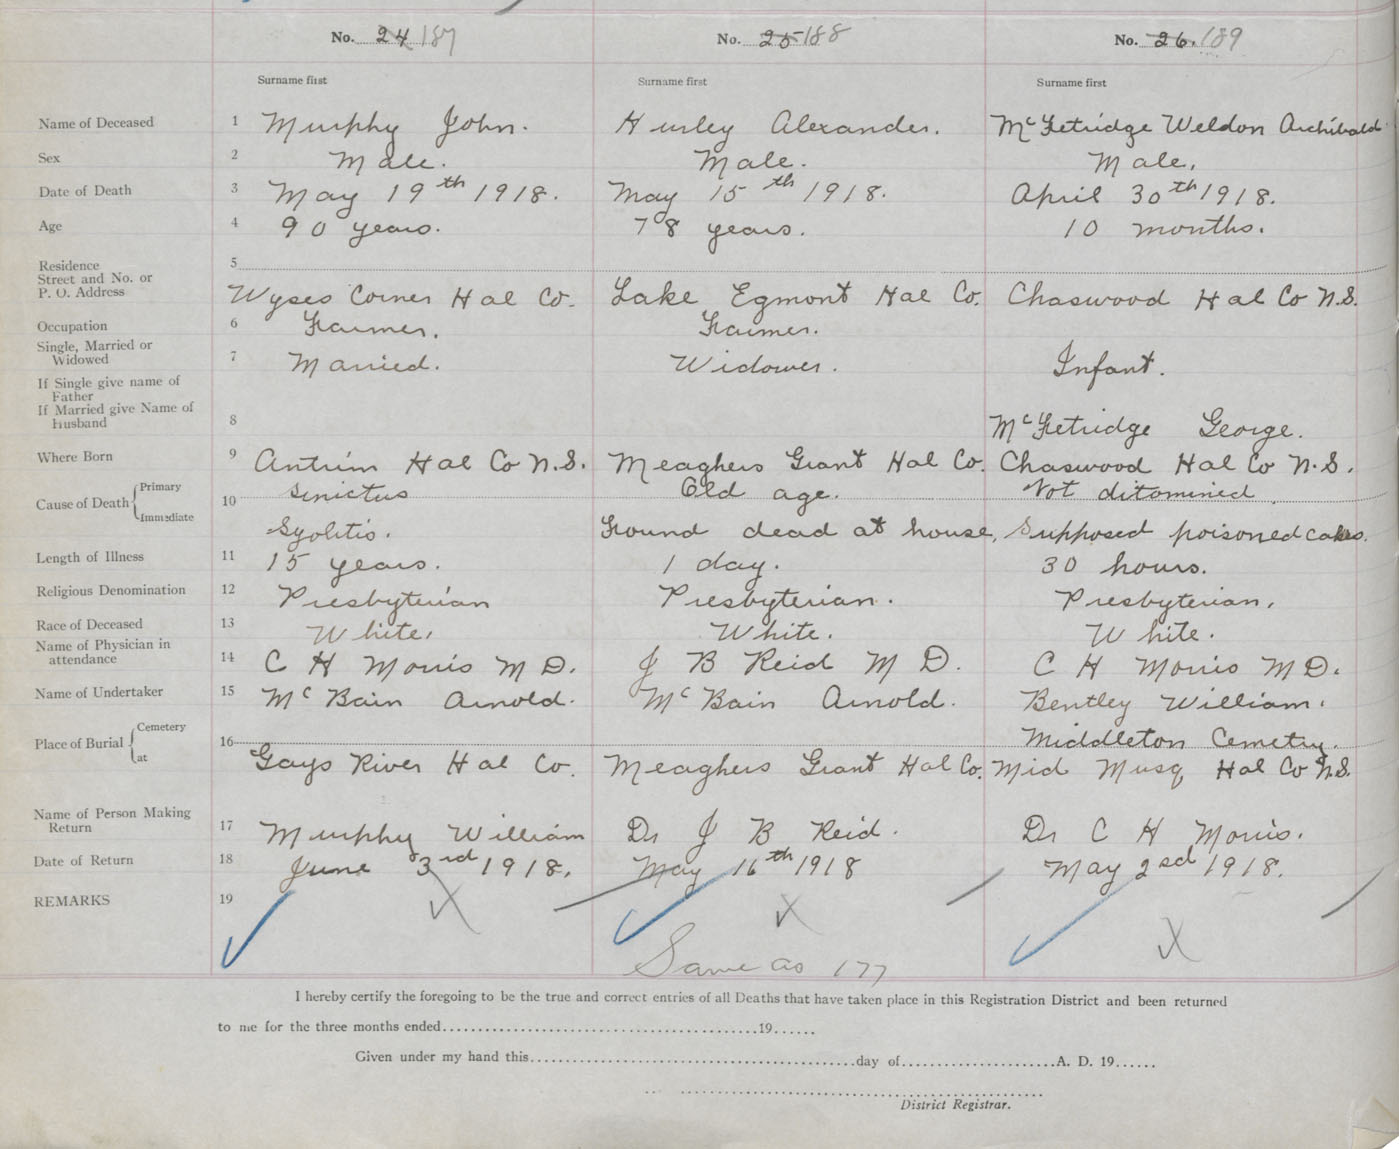 No. 24 187 No. 25 188 No. 26. 189
Surname first Surname first Surname first
Name of Deceased 1 Murphy John. Hurley Alexander. McFetridge Weldon Archibald
Sex 2 Male. Male. Male.
Date of Death 3 May 19th 1918. May 15th 1918. April 30th 1918.
Age 4 90 years. 78 years. 10 months.
Residence 5
Street and No. or
P. O. Address Wyses Corner Hal Co. Lake Egmont Hal Co. Chaswood Hal Co N.S.
Occupation 6 Farmer. Farmer.
Single, Married or
Widowed 7 Married. Widower. Infant.
If Single give name of
Father
If Married give Name of
Husband 8 McFetridge George.
Where Born 9 Antrim Hal Co N.S. Meaghers Grant Hal Co. Chaswood Hal Co N.S.
Cause of Death Primary 10 Sinictus Old age. Not ditomined.
Immediate Syolitis. Found dead at house, Supposed poisoned cakes.
Length of Illness 11 15 years. 1 day. 30 hours.
Religious Denomination 12 Presbyterian Presbyterian. Presbyterian.
Race of Deceased 13 White. White. White.
Name of Physician in
attendance 14 C H Morris M D. J B Reid M D. C H Morris M D.
Name of Undertaker 15 McBain Arnold. McBain Arnold. Bentley William.
Place of Burial Cemetery 16 Middleton Cemetry.
at Gays River Hal Co. Meaghers Grant Hal Co. Mid Musq Hal Co N.S.
Name of Person Making
Return 17 Murphy William Dr J B Reid. Dr C H Morris.
Date of Return 18 June 3rd 1918. May 16th 1918 May 2sd 1918.
REMARKS 19
Same as 177
I hereby certify the foregoing to be the true and correct entries of all Deaths that have taken place in this Registration District and been returned
to me for the three months ended 19
Given under my hand this day of A. D. 19
District Registrar.